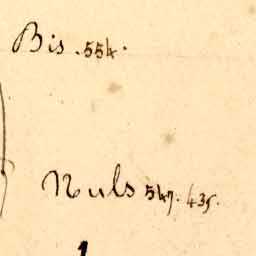 Bis . 554.
Nuls 547. 435.